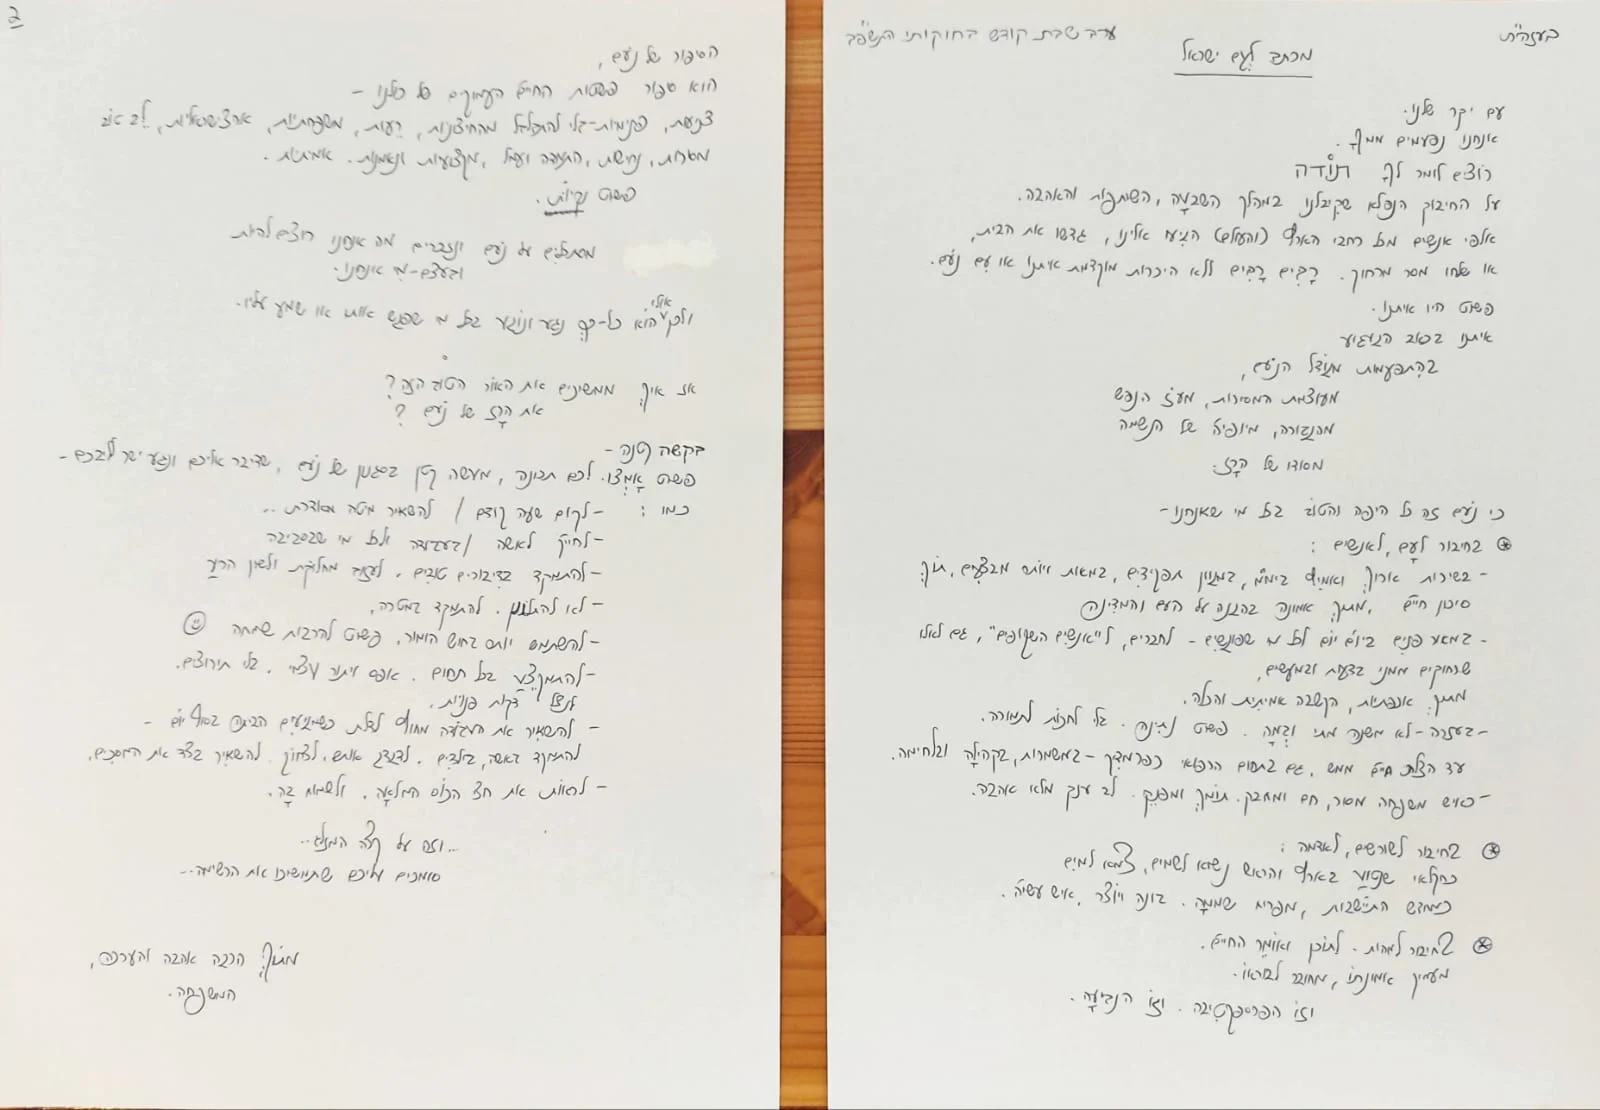 בעזהי"ת
ערב שבת קודש בחוקותי התשפ"ב
מכתב לעם ישראל
עם יקר שלנו.
אנחנו נפעמים ממךָ.
רוצים לומר לךָ תודה
על החיבוק הנפלא שקיבלנו במהלך השבעה, השותפות והאהבה.
אלפי אנשים מכל רחבי הארץ (והעולם) הגיעו אלינו, גדשו את הבית,
או שלחו מסר מרחוק. רָבִּים רָבִּים ללא היכרות מוקדמת איתנו או עם נעם.
פשוט היו איתנו.
איתנו בכאב הגעגוע
בהתפעמות מגודל הנעם,
מעוצמת המסירות, מעֹז הנפש
מהגבורה, מיופיה של הנשמה
מסודו של הרָז.
כי נעם זה כל היפה והטוב בכל מי שאנחנו-
בחיבור לעָם, לאנשים :
- בשירות ארוך ואמיץ בימ"מ, במגוון תפקידים, במאות ויותר מבצעים, תוך
סיכון חיים, מתוך אמונה בהגנה על העם והמדינה
- במאור פנים ביום יום לכל מי שפוגשים - לחברים, ל"אנשים השקופים", גם לאלו
שרחוקים ממני בדעות ובמעשים,
מתוך אכפתיות, הקשבה אמיתית והכלה.
- בעזרה - לא משנה מתי ובְמָה. פשוט נתינה. בלי לחכות לתמורה.
עד הצלת חיים ממש, גם בתחום הרפואי כפרמדיק - במשמרות, בקהילה ובלחימה.
- כאיש משפחה מסור, חם ומחבק. תומך ומפנק. לב ענק מלא אהבה.
בחיבור לשורשים, לאדמה :
כחקלאי שנטוע בארץ והראש נשוא לשמים, צמא למים
כמחדש התיישבות, מפריח שממה. בונה ויוצר, איש עשיה.
בחיבור למהות. לתוכן ואומר החיים.
מעמיק אמונתו, מחובר לבוראו.
וזו הפרספקטיבה. וזו הנביעָה.
2
הסיפור של נעם,
הוא סיפור פשטות החיים העמוקים של כולנו -
צניעות, פנימיות-בלי להתבלבל מהחיצונות, רֵעות, משפחתיות, ארצישראליות, לב אוהב
מסירות, נחישות, התמדה ועמל, מקצועיות ונאמנות. אמיתיות.
פשוט נקיות.
מסתכלים על נעם ונזכרים מה אנחנו רוצים להיות
ובעצם-מי אנחנו.
ולכן אולי הוא כל-כך נגע ונוגע בכל מי שפגש אותו או שמע עליו.
אז איך ממשיכים את האור הטוב הזה?
את הרָז של נעם ?
בקשה קטנה-
פשוט אַמְצו. לכם תכונה, מעשה קטן בסגנון של נעם, שדיבר אליכם ונגע ישר לליבכם -
כמו : - לקום שעה קודם / להשאיר מיטה מסודרת..
- לחייך לאשה /בעבודה ולכל מי שבסביבה
- להתמקד בדיבורים טובים. לעזוב מחלוקת ולשון הרע
- לא להתלונן. להתמקד במטרה,
- להשתמש יותר בחוש הומור, פשוט להרבות שמחה
- להתמקצֵעַ בכל תחום. אפס ויתור עצמי. בלי תירוצים.
לנצל דקות פנויות.
- להשאיר את העבודה מחוץ לדלת כשמגיעים הביתה בסוף יום -
להתמקד באשה, בילדים. לדגדג אותם, לצחוק. להשאיר בצד את המסכים.
- לראות את חצי הכוס המלאָה. ולשמוח בָּהּ.
...וזה על קצה המזלג..
סומכים עליכם שתמשיכו את הרשימה...
מתוך הרבה אהבה והערכה,
המשפחה.